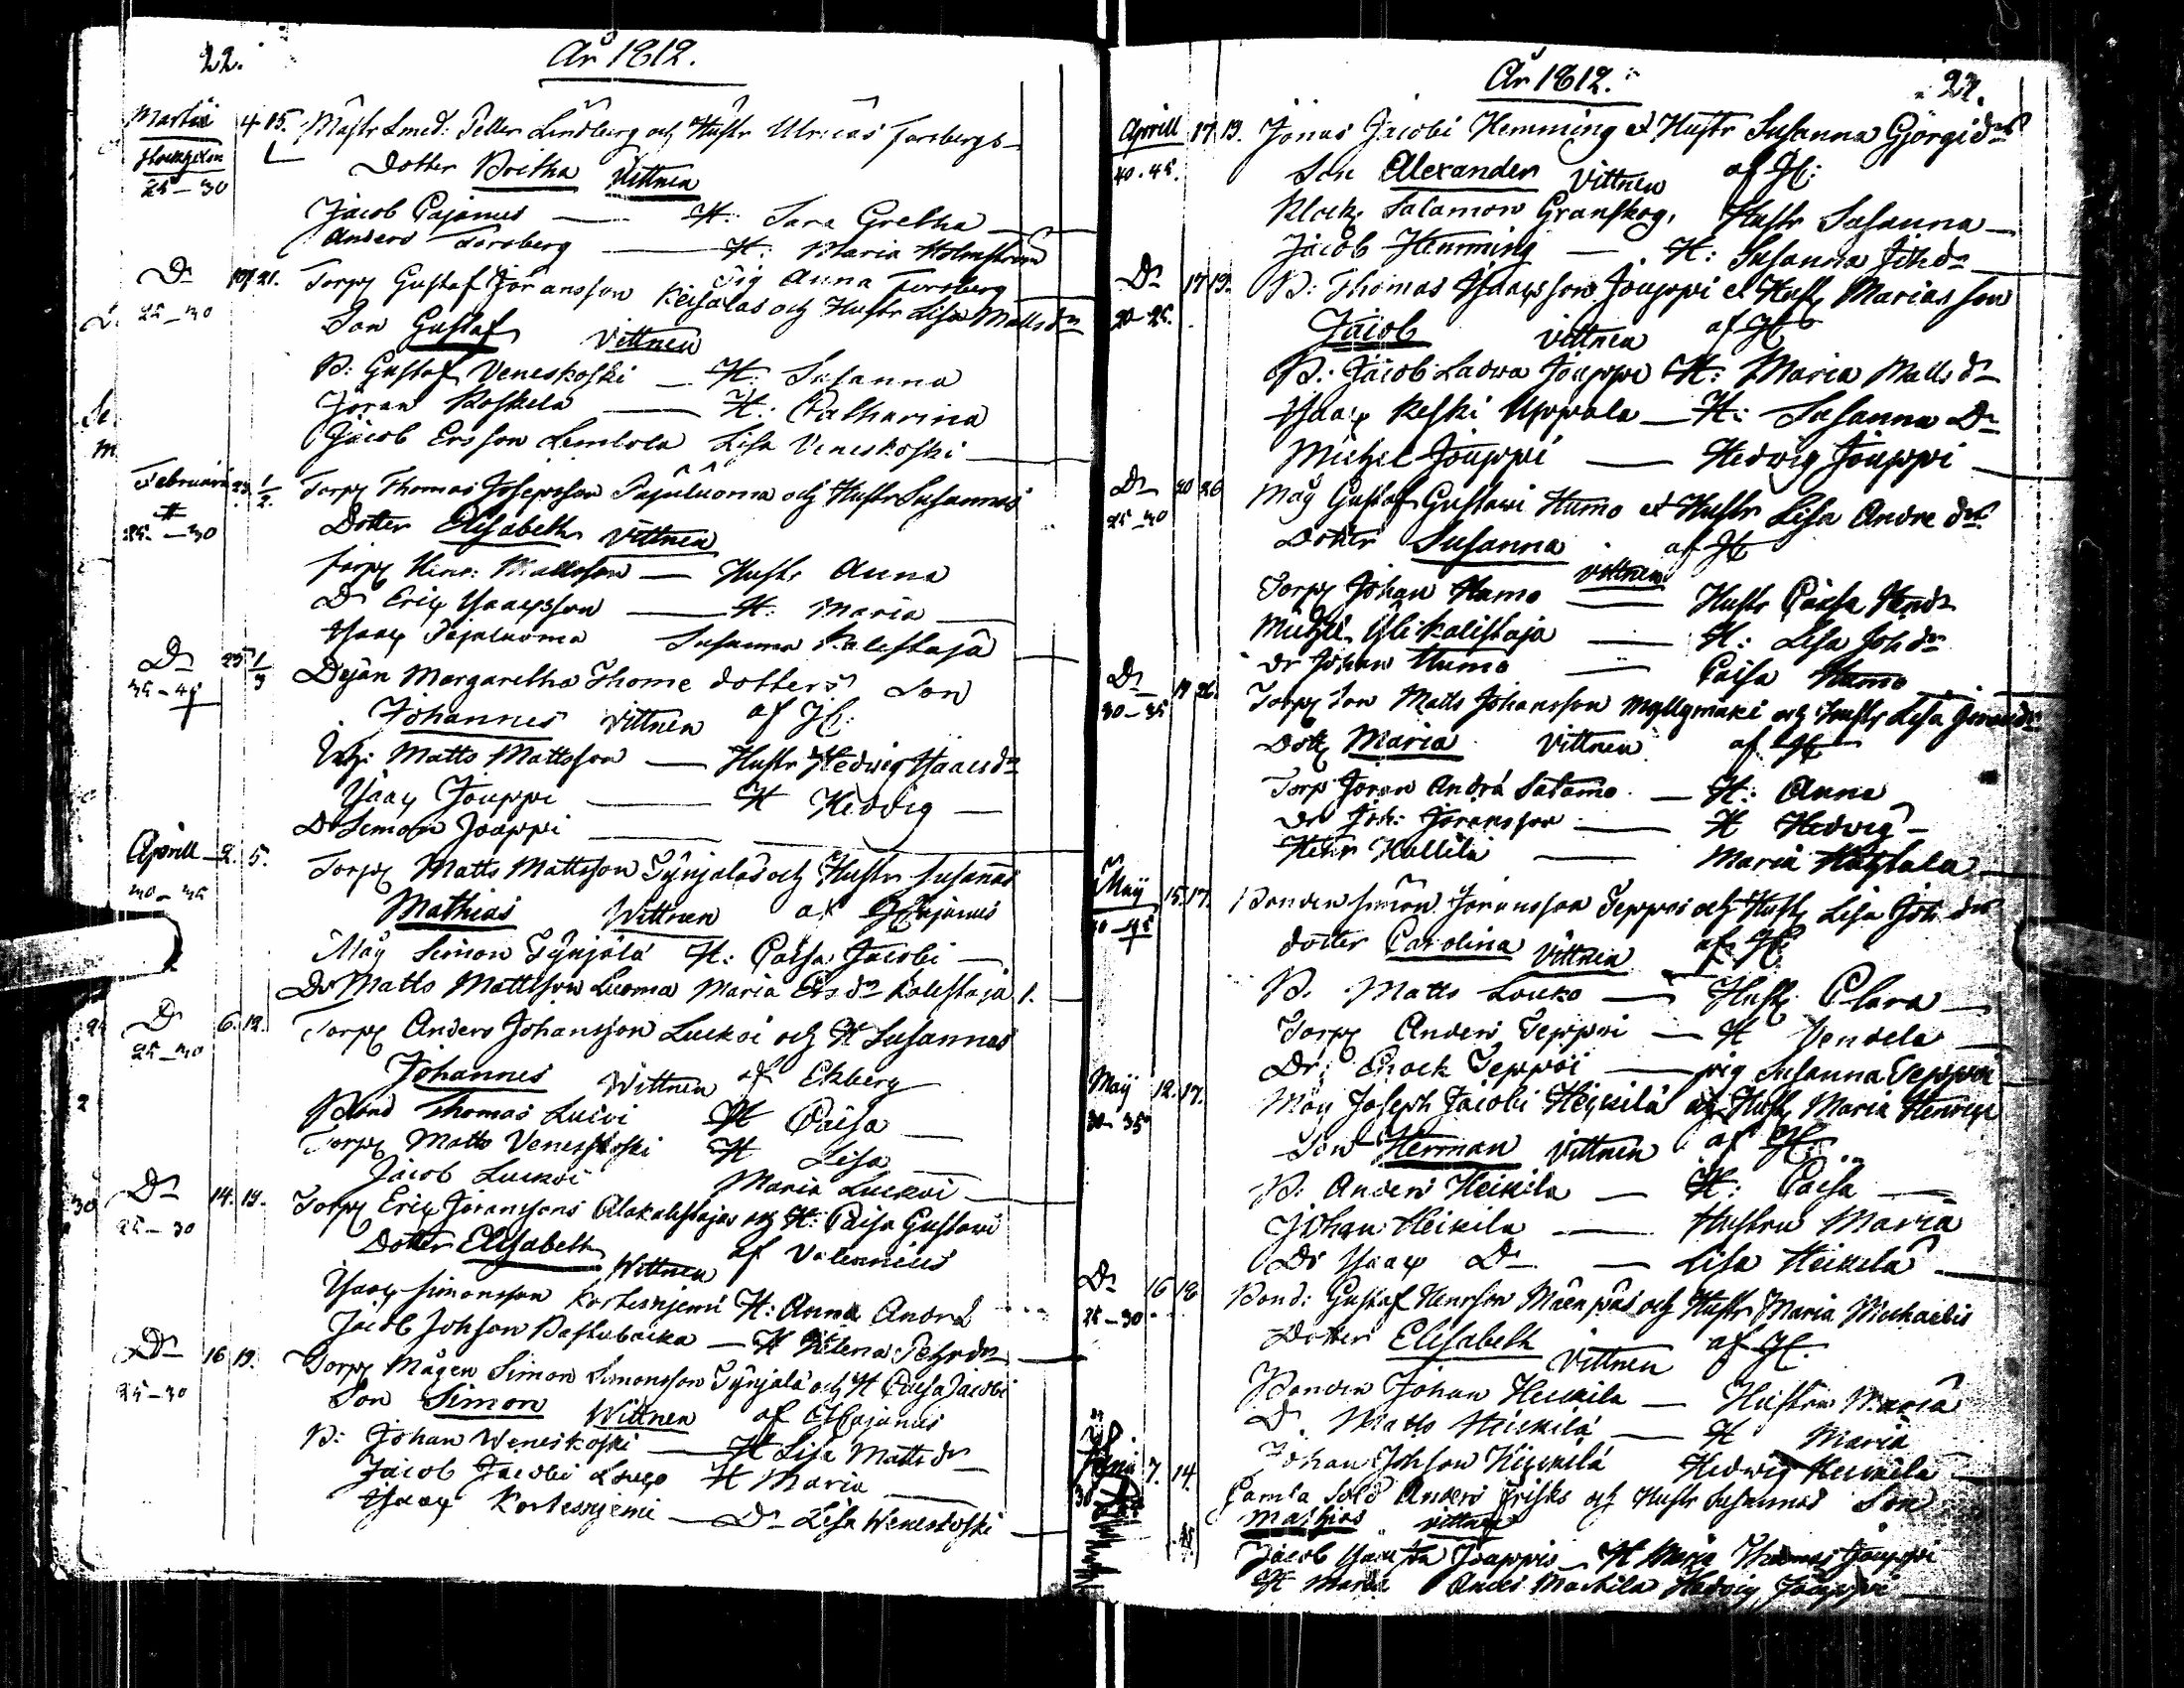 22.
År 1812.
Martii 4 15. Mastr Smed: Petter Lindberg och Hustr Ulricas Forsbergs
Stockholm
25-30 Dotter Britha Vittnen
Jacob Cajanus — H: Sara Gretha
Anders Forsberg — H: Maria Holmström
Pig Anna Forsberg
Do 21. Torp Gustaf Jöransson Keisalas och Hustr Lisa Matts dr
25-30 Son Gustaf Vittnen
B: Gustaf Veneskoski — H: Susanna
Jöran Koskela — H: Catharina
Jacob Ersson Lembola Lisa Veneskoski
Februarii 1/2. Torp Thomas Josepsson Pajuluoma och Hustr Susannas
25-30 Dotter Elisabeth Vittnen
Torp Hinr: Mattsson — Hustr Anna
Do Eric Isaacsson — H: Maria
Isaac Pajuluoma Susanna Kalistaja
Do 25 1/3 Dejan Margaretha Thome dotters Son
Johannes Vittnen af H:
Matts Mattsson — Hustr Hedvig Isaacs dr
Isaac Jouppi — H Hedvig
Do Simon Jouppi
Aprill 2. 5. Torp Matts Mattsson Tynjalas och Hustr Susanas
30-35 Mathias Wittnen af Cajanus
Måg Simon Tynjälä H: Caisa Jacobi
Do Matts Mattsson Luoma Maria Ers dr Kalistaja
Do 6. 12. Torp Anders Johansson Luckoi och H Susannas
25-30 Johannes Wittnen af Ekberg
Bond Thomas Luivi H Caisa
Torp Matts Veneskoski H Lisa
Jacob Luckoi Maria Luckoi
Do 14. 19. Torp Eric Jöranssons Alakalistajas och H: Caisa Gustavi
25-30 Dotter Elisabeth Wittnen af Valennius
Isaac Simonsson Kortesnjemi H: Anna Andr
Jacob Johsson Passubacka — H Helena Pehrs dr
Do 16 19. Torp Mågen Simon Simonsson Tynjälä och H Caisa Jacobi
25-30 Son Simon Wittnen af Cajanus
B: Johan Weneskoski — H Lisa Matts dr
Jacob Jacobi Louco H Maria
Isaac Kortesnjemi — Do Lisa Weneskoski
År 1812. 23.
Aprill 17 19. Jonas Jacobi Hemming et Hustr Susanna Gjörgi drs
40-45. Son Alexander Vittnen af H:
Klock. Salamon Granskog, Hustr Susanna
Jacob Hemming — H: Susanna Joh dr
Do 17 19. B: Thomas Isaacsson Jouppi et Hust Marias son
20-25. Jacob Vittnen af H
B: Jacob Ladwa Jouppi H: Maria Matts dr
Isaac Keski Uppala — H: Susanna Do
Michel Jouppi — Hedvig Jouppi
Do 20 26 Måg Gustaf Gustavi Humo et Hustr Lisa Andre drs
25-30 Dotter Susanna Vittnen af H
Torp Johan Humo — Hustr Caisa Hendr
Michel Ylikalistaja — H: Lisa Joh dr
Dr Johan Humo — Caisa Humo
Do 19 26. Torp Son Matts Johansson Myllymäki och Hustr Lisa
30-35 Dott Maria Vittnen af H
Torp Jöran Andrä Salamo — H: Anna
Dr Joh: Jöransson — H Hedvig
Henr Kallila — Maria
Maij 15. 17. Bonden Simon Jöransson Seppois och Hust Lisa Joh drs
dotter Carolina Vittnen af H
B. Matts Louko — Hust Clara
Torp Anders Seppoi — H Vendela
Dr Enock Seppoi — pig Susanna Seppoi
Maij 12. 17. Måg Joseph Jacobi Heickilä och Hust Maria Henrics
30-35 Son Herman Vittnen af H
B: Anders Heickila — H: Caisa
Johan Heickila — Hustru Maria
Do Isaac Do — Lisa Heickilä
Do 16 18 Bond: Gustaf Henrsson Mäenpäs och Hustr Maria Michaelis
25-30 Dotter Elisabeth Vittnen af H.
Bonden Johan Heickila — Hustru Maria
Do Matts Heickilä — H Maria
Johan Johsson Heickilä Hedvig Heickila
Junii 7. 14. Gamla Sold Anders Frisks och Hustr Susannas Son
Mathias Vittnen
Jacob Jouppi — H Maria Thomas Jouppi
H Maria Anders Mackila Hedvig Jouppi